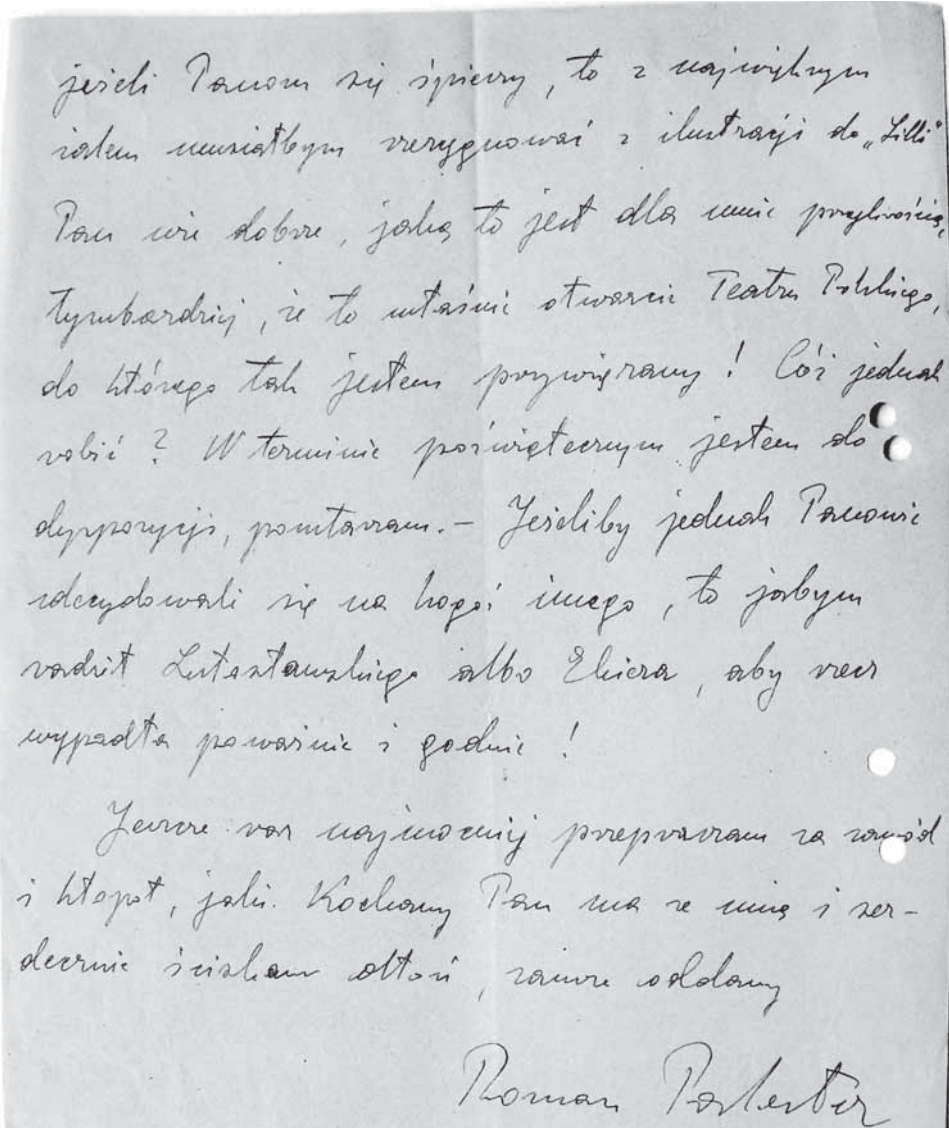 jeżeli Panom się śpieszy, to z największym
żalem musiałbym zrezygnować z ilustracji do „Lilli"
Pan wie dobrze, jaką to jest dla mnie przykrością,
tymbardziej, że to właśnie otwarcie Teatru Polskiego,
do którego tak jestem przywiązany! Cóż jednak
robić? W terminie poświątecznym jestem do
dyspozycji, powtarzam. – Jeżeliby jednak Panowie
zdecydowali się na kogoś innego, to jabym
radził Lutosławskiego albo Ekiera, aby rzecz
wypadła poważnie i godnie!
Jeszcze raz najmocniej przepraszam za zawód
i kłopot, jaki Kochany Pan ma ze mną i ser-
decznie ściskam dłoń, zawsze oddany
Roman Palester